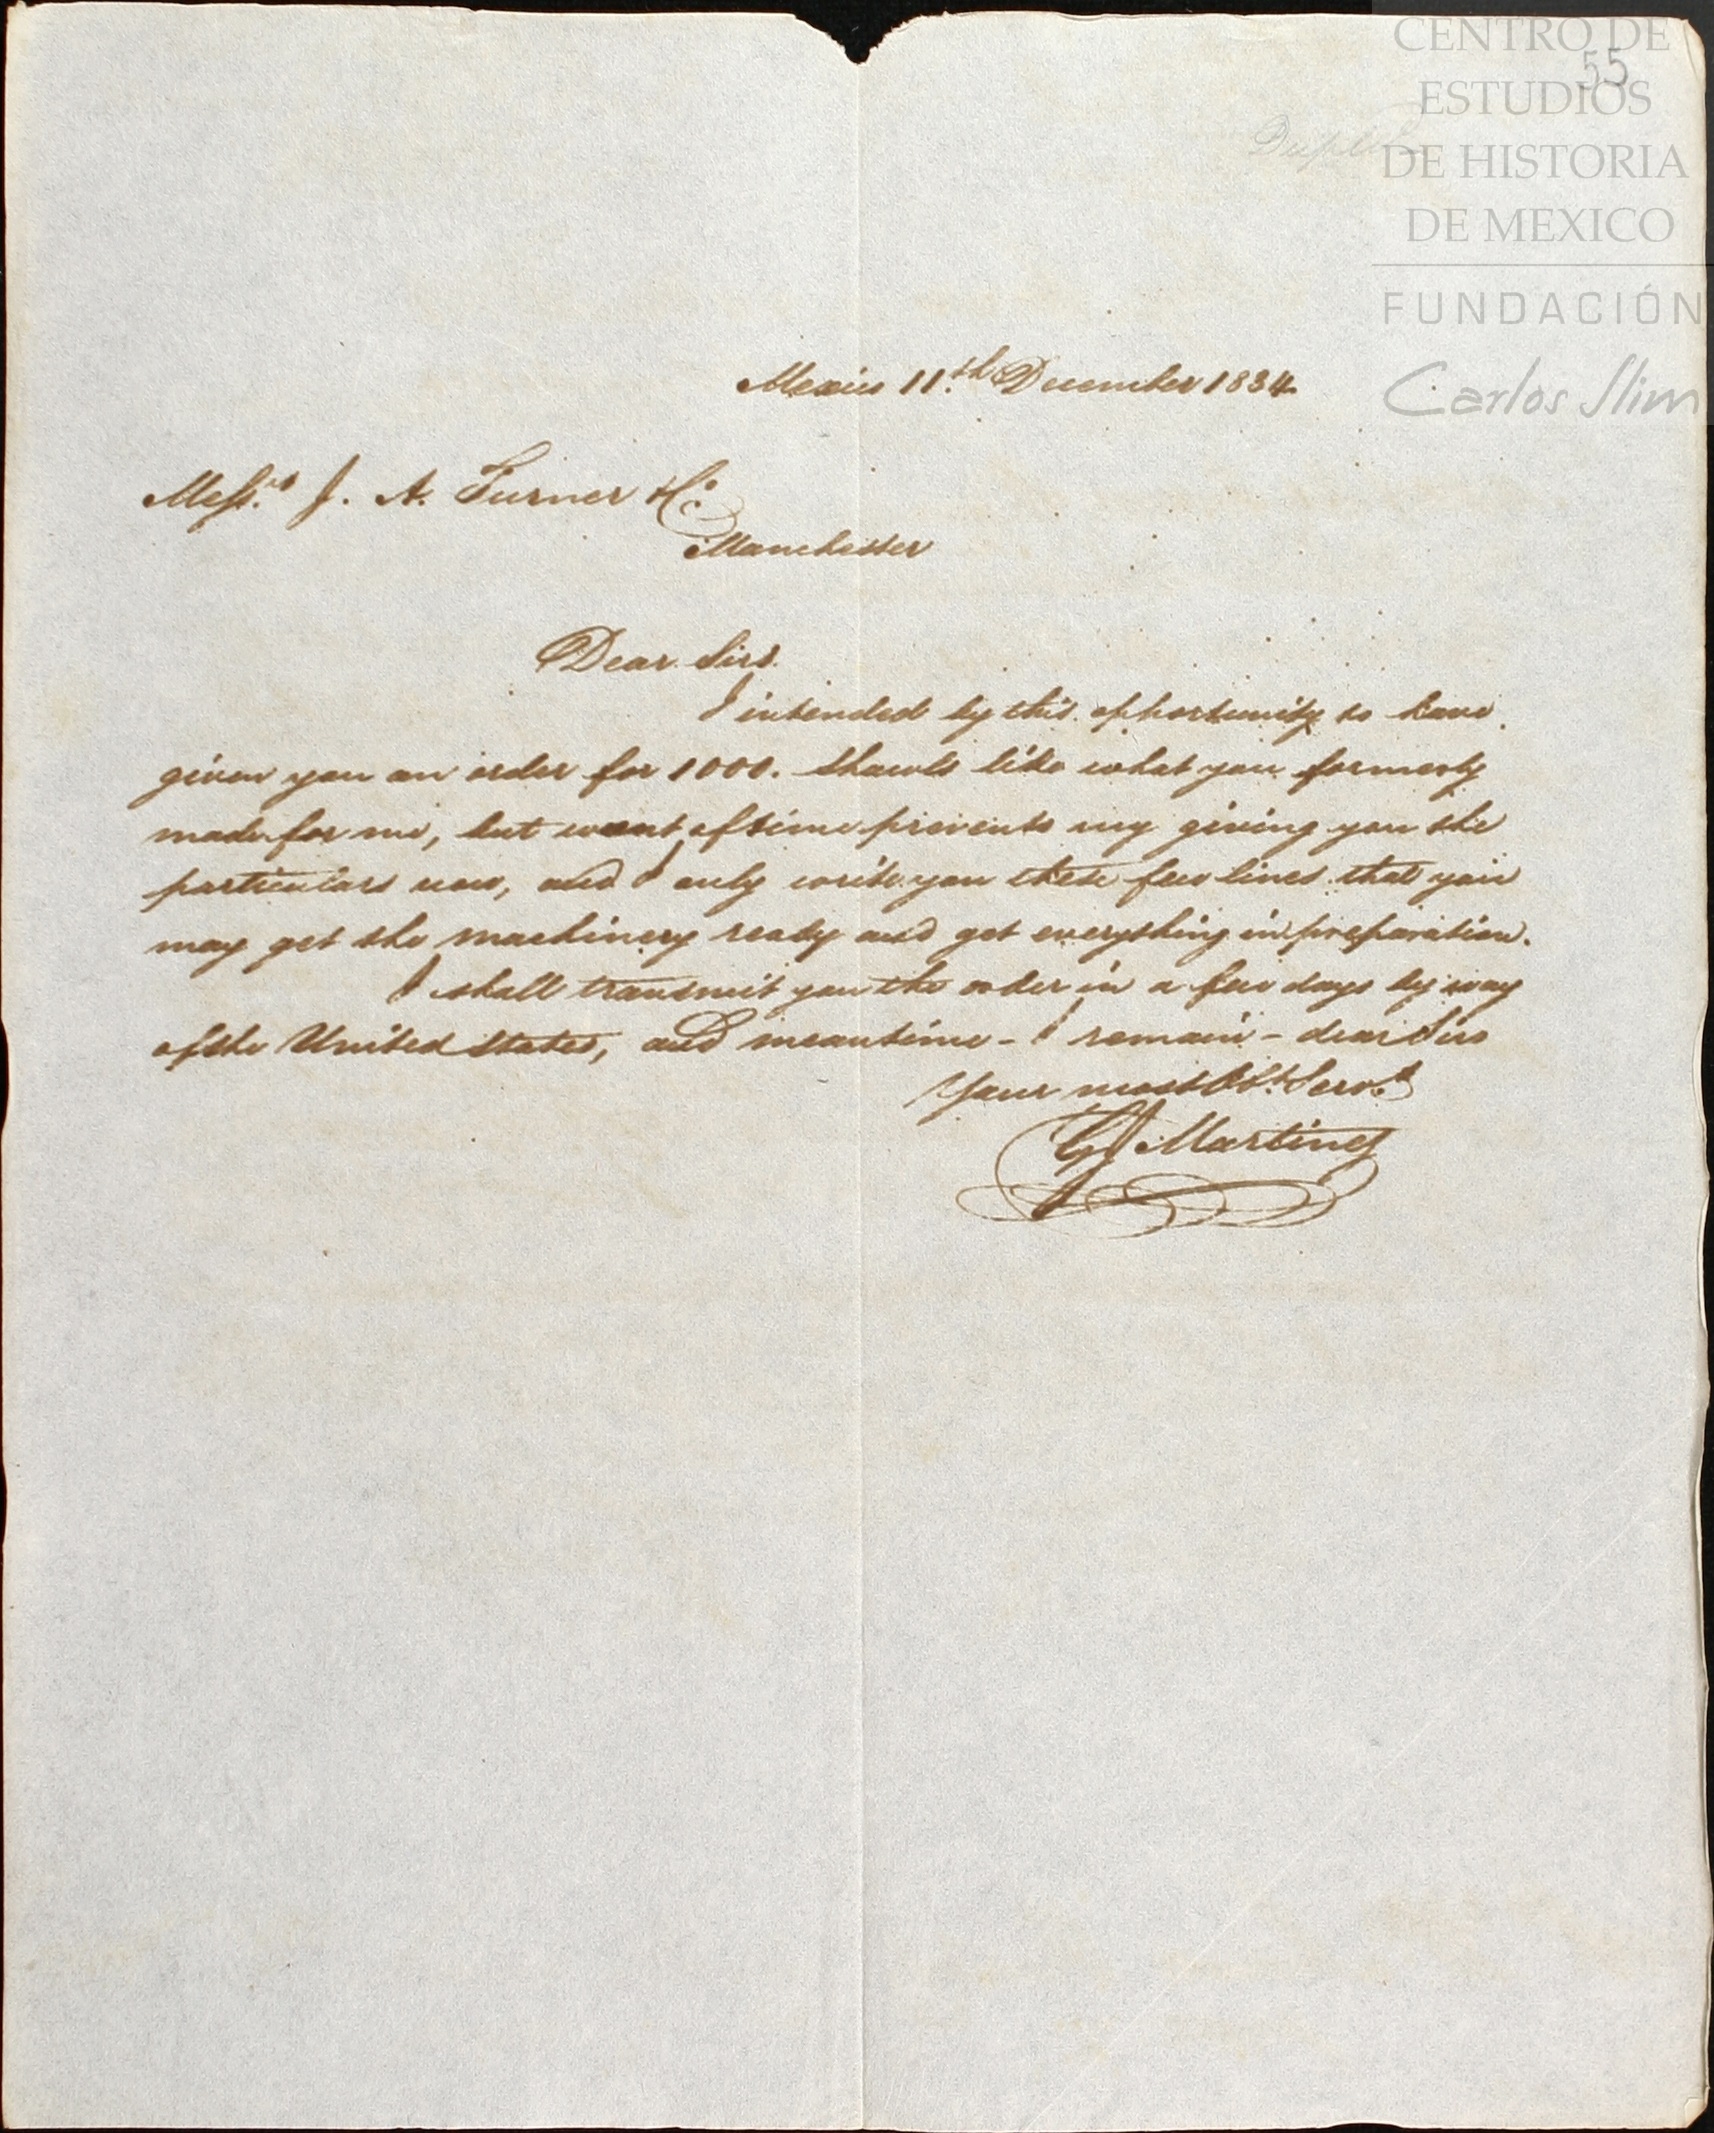 CENTRO DE
55
ESTUDIOS
DE HISTORIA
DE MEXICO
FUNDACIÓN
Carlos Slim
Mexico 11.th December 1834
Mess.rs J. A. Turner & Co.
Manchester
Dear Sirs.
I intended by this opportunity to have
given you an order for 1000. Shawls like what you formerly
made for me, but want of time prevents my giving you the
particulars now, and I only write you these few lines that you
may get the machinery ready and get everything in preparation.
I shall transmit you the order in a few days by way
of the United States, and meantime - I remain - dear Sirs
Your most Obt. Servt.
Martinez